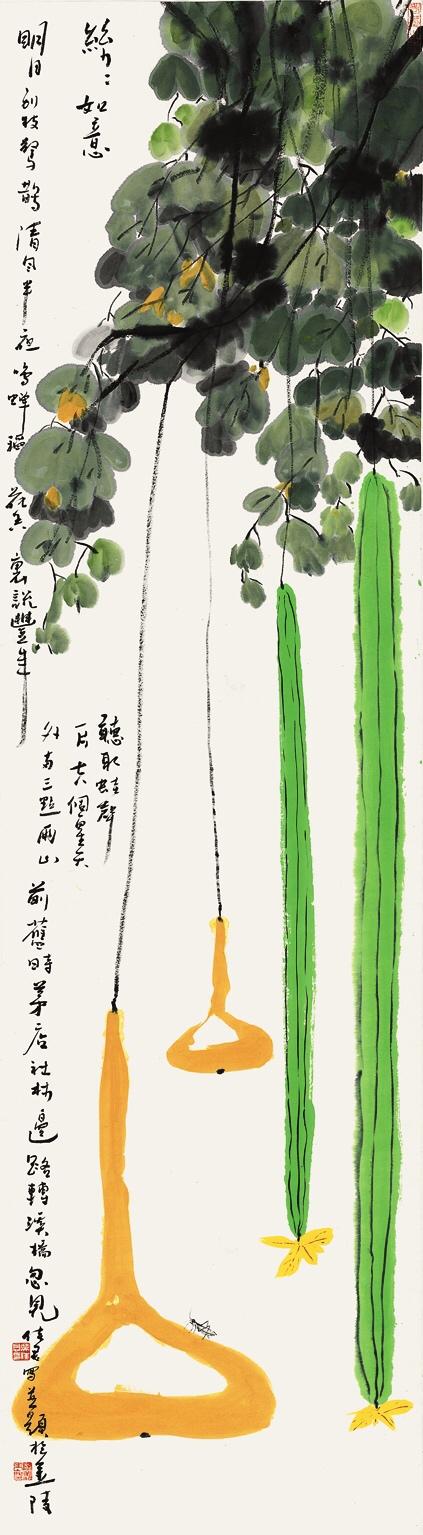 絲〻如意
明月別枝驚鵲清風半夜鳴蟬稻花香裏說豐年
聽取蛙聲
一片七八個星天
外兩三點雨山前舊時茅店社林邊路轉溪橋忽見
寫並題於金陵